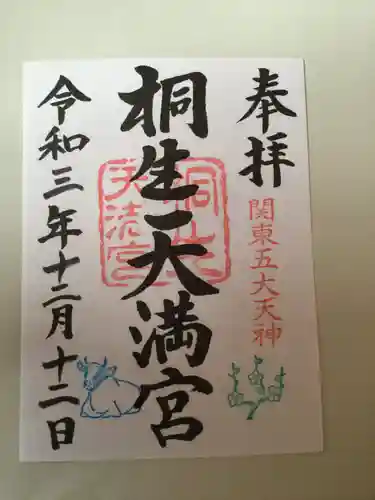 奉拝
関東五大天神
桐生天満宮
令和三年十二月十二日